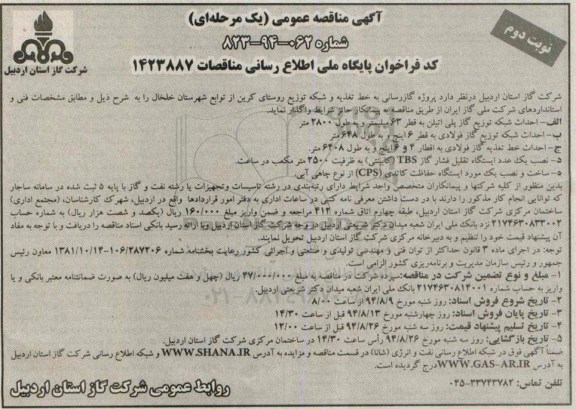 آگهی مناقصه عمومی (یک مرحله‌ای)
شماره ۰۶۲-۹۴-۸۲۳
کد فراخوان پایگاه ملی اطلاع رسانی مناقصات ۱۴۲۳۸۸۷
نوبت دوم
شرکت گاز استان اردبیل
شرکت گاز استان اردبیل درنظر دارد پروژه گازرسانی به خط تغذیه و شبکه توزیع روستای کرین از توابع شهرستان خلخال را به شرح ذیل و مطابق مشخصات فنی و
استانداردهای شرکت ملی گاز ایران از طریق مناقصه به پیمانکار حائز شرایط واگذار نماید.
الف- احداث شبکه توزیع گاز پلی اتیلن به قطر ۶۳ میلیمتر و به طول ۲۸۰۰ متر
ب- احداث شبکه توزیع گاز فولادی به قطر ۶ اینچ و به طول ۶۴۸ متر
ج- احداث خط تغذیه گاز فولادی به اقطار ۴ و ۶ اینچ و به طول ۶۴۰۸ متر.
د- نصب یک عدد ایستگاه تقلیل فشار گاز TBS (کابینتی) به ظرفیت ۲۵۰۰ متر مکعب در ساعت.
ه- ساخت و نصب یک مورد ایستگاه حفاظت کاتدی (CPS) از نوع چاهی آبی.
بدین منظور از کلیه شرکتها و پیمانکاران متخصص واجد شرایط دارای رتبه‌بندی در رشته تاسیسات وتجهیزات یا رشته نفت و گاز با پایه ۵ ثبت شده در سامانه ساجار
که توانایی انجام کار مذکور را دارند با در دست داشتن معرفی نامه کتبی در ساعات اداری به دفتر امور قراردادها واقع در اردبیل، شهرک کارشناسان، (مجتمع اداری)
ساختمان مرکزی شرکت گاز استان اردبیل، طبقه چهارم اتاق شماره ۴۱۴ مراجعه و ضمن واریز مبلغ ۱۶۰/۰۰۰ ریال (یکصد و شصت هزار ریال) به شماره حساب
۲۱۷۴۶۳۰۸۳۳۰۰۲ نزد بانک ملی ایران شعبه میدان دکتر شریعتی اردبیل در وجه شرکت گاز استان اردبیل وبا ارائه رسید بانکی اسناد مناقصه را دریافت و با توجه به مفاد
آن پیشنهاد قیمت خود را تنظیم و به دبیرخانه مرکزی شرکت گاز استان اردبیل تحویل نمایند.
توجه: در اجرای ماده ۳ قانون حداکثر از توان فنی و مهندسی تولیدی و صنعتی و اجرائی کشور رعایت بخشنامه شماره ۱۰۶/۲۸۷۲۰۶-۱۳۸۱/۱۰/۱۴ معاون رئیس
جمهور و رئیس سازمان مدیریت و برنامه‌ریزی کشور الزامی است.
۱- مبلغ و نوع تضمین شرکت در مناقصه: سپرده شرکت در مناقصه به مبلغ ۴۷/۰۰۰/۰۰۰ ریال (چهل و هفت میلیون ریال) به صورت ضمانتنامه معتبر بانکی و یا
واریز به حساب شماره ۲۱۷۴۶۳۰۸۱۴۰۰۱ بانک ملی ایران شعبه میدان دکتر شریعتی اردبیل.
۲- تاریخ شروع فروش اسناد: روز شنبه مورخ ۹۴/۸/۹ از ساعت ۸/۰۰
۳- تاریخ پایان فروش اسناد: روز چهارشنبه مورخ ۹۴/۸/۱۳ قبل از ساعت ۱۴/۳۰
۴- تاریخ تسلیم پیشنهاد قیمت: روز سه شنبه مورخ ۹۴/۸/۲۶ قبل از ساعت ۱۲/۰۰
۵- تاریخ بازگشایی: روز سه شنبه مورخ ۹۴/۸/۲۶ رأس ساعت ۱۴/۳۰ در ساختمان مرکزی شرکت گاز استان اردبیل.
ضمناً آگهی فوق در شبکه اطلاع رسانی نفت و انرژی (شانا) در قسمت مناقصه و مزایده به آدرس WWW.SHANA.IR و شبکه اطلاع رسانی شرکت گاز استان اردبیل
به آدرس WWW.GAS-AR.IR درج گردیده است.
تلفن تماس: ۳۳۷۴۳۷۸۲-۰۴۵
روابط عمومی شرکت گاز استان اردبیل